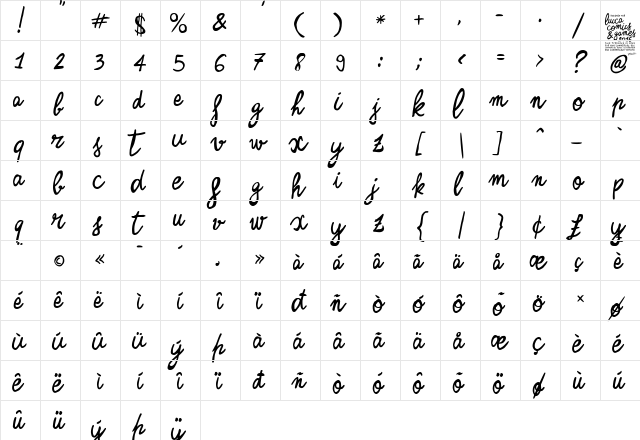 ! " # $ % & ' ( ) * + , - . / luca comics & games
1 2 3 4 5 6 7 8 9 : ; < = > ? @
a b c d e f g h i j k l m n o p
q r s t u v w x y z [ \ ] ^ – `
a b c d e f g h i j k l m n o p
q r s t u v w x y z { | } ¢ £ y
¨ © « ¯ ´ · » à á â ã ä å æ ç è
é ê ë ì í î ï đ ñ ò ó ô õ ö × ø
ù ú û ü ý þ à á â ã ä å æ ç è é
ê ë ì í î ï đ ñ ò ó ô õ ö ø ù ú
û ü ý þ ÿ